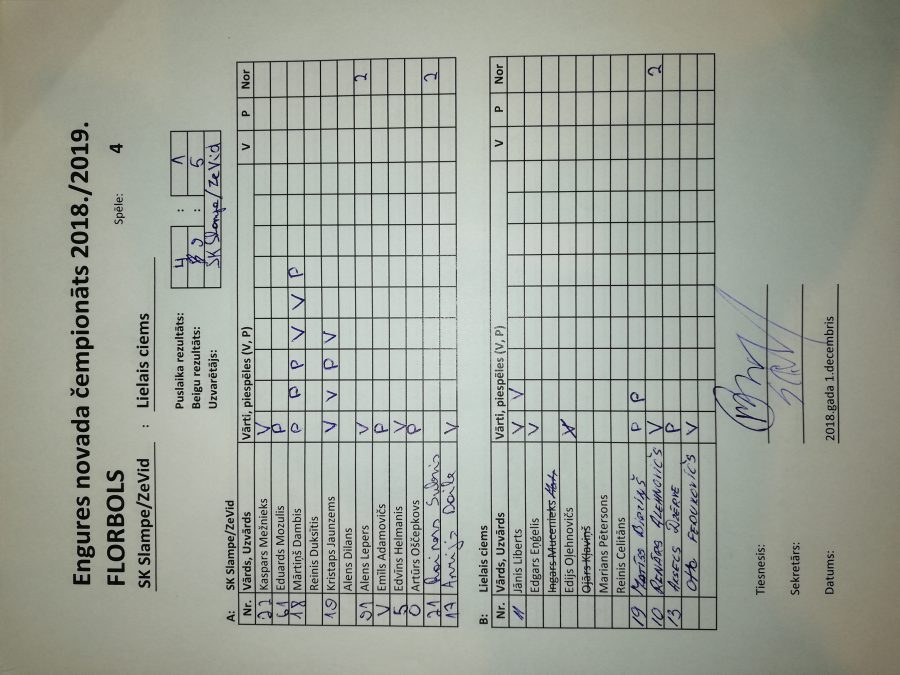 Engures novada čempionāts 2018./2019.
FLORBOLS Spēle: 4
SK Slampe/ZeVid : Lielais ciems
Puslaika rezultāts: 4 : 1
Beigu rezultāts: 9 : 5
Uzvarētājs: SK Slampe/ZeVid
A: SK Slampe/ZeVid
Nr. Vārds, Uzvārds Vārti, piespēles (V, P) V P Nor
22 Kaspars Mežnieks V
61 Eduards Mozulis P
18 Mārtiņš Dambis P P P V V P
Reinis Duksītis
19 Kristaps Jaunzems V V P V
Alens Dilans
91 Alens Lepers V 2
V Emīls Adamovičs P
5 Edvīns Helmanis V
0 Artūrs Oščepkovs P
21 Rainers 2
17 Arvijs Daile V
B: Lielais ciems
Nr. Vārds, Uzvārds Vārti, piespēles (V, P) V P Nor
11 Jānis Liberts V V
Edgars Eņģelis V
Ingars Mucenieks
Edijs Olehnovičs V
Ojārs Kļaviņš
Marians Pētersons
Reinis Celitāns
19 P P
10 RENĀRS OLEHNOVIČS V 2
13 P
OTTO V
Tiesnesis:
Sekretārs:
Datums: 2018.gada 1.decembris